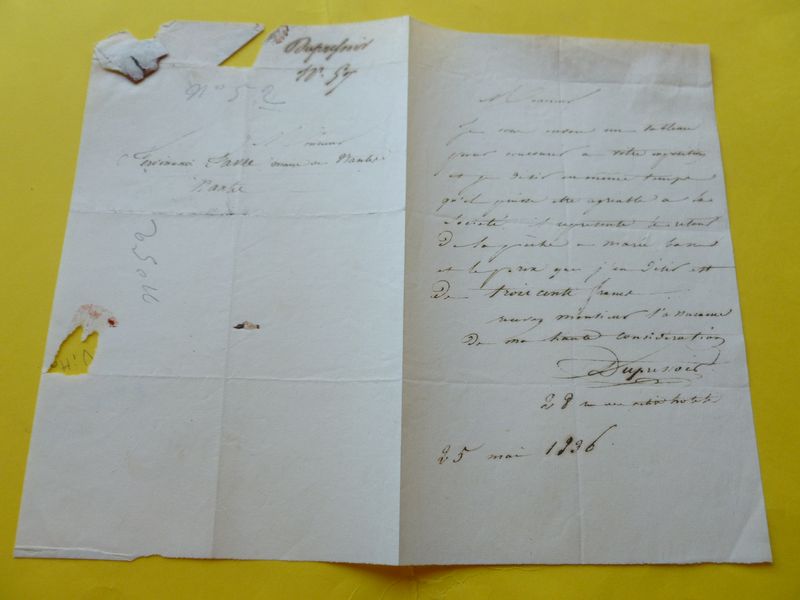 Dupressoir
N°. 57
N° 52
Monsieur
Ferdinand Favre maire de Nantes
Nantes
N° 59
Monsieur
Je vous envoie un tableau
pour concourir a votre exposition
et je desir en meme temps
qu'il puisse etre agreable a la
Societé il represente le retour
De la pêche a marée basse
et le prix que j'en desir est
De trois cents francs
recevez monsieur l'assurance
De ma haute consideration
Dupressoir
28 rue
25 mai 1836